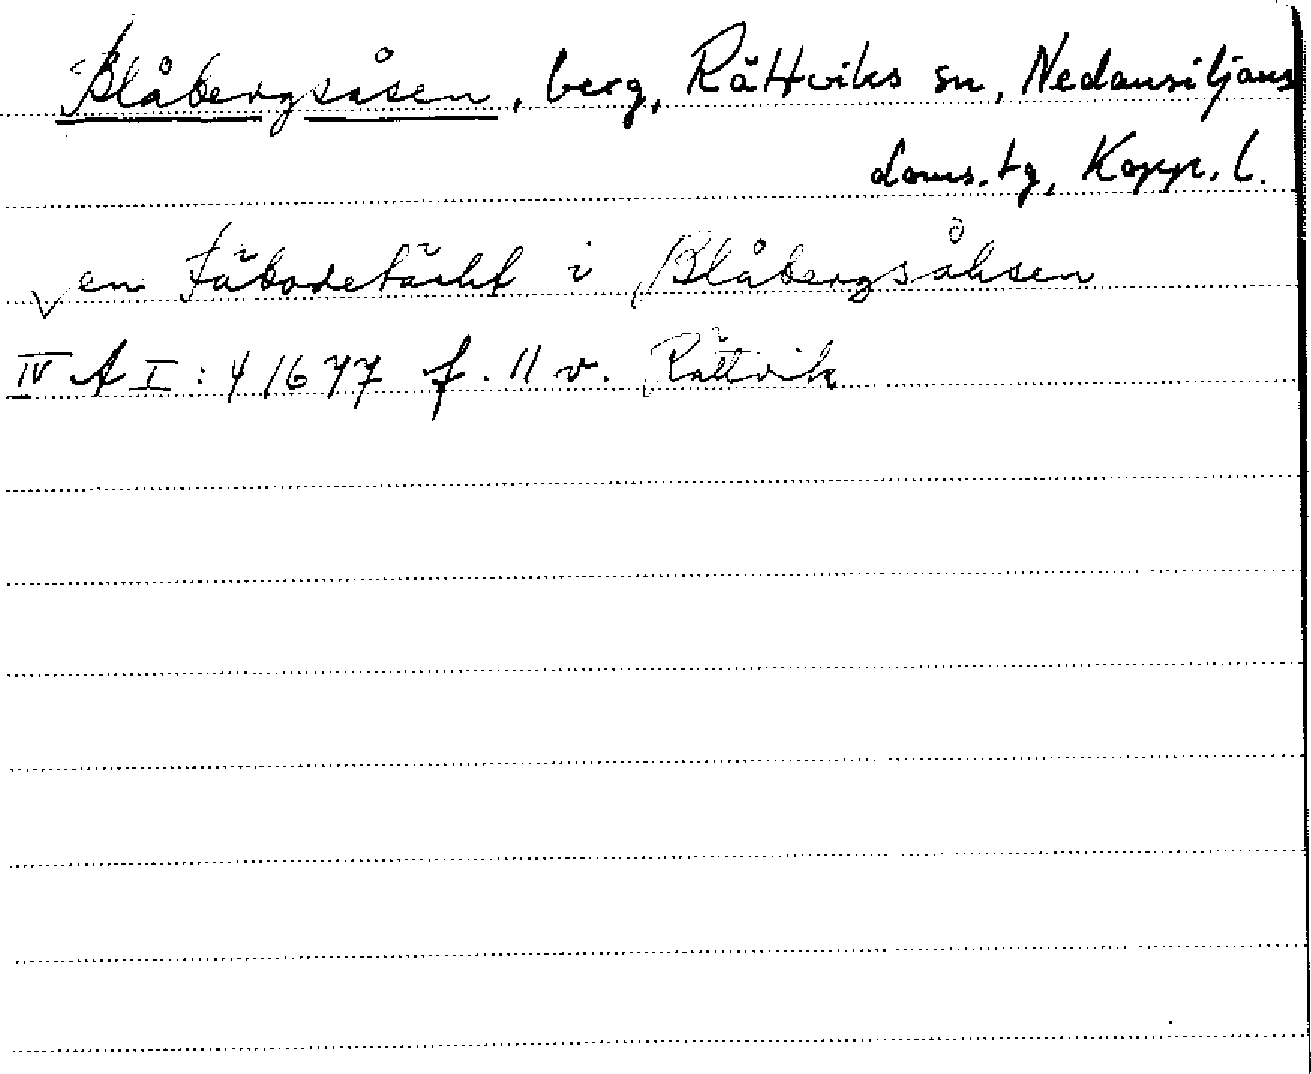 Blåbergsåsen, berg, Rättviks sn, Nedansiljans
doms.tg, Kopp. l.
en fäbodetächt i Blåbergsåhsen
IV A I: 4 1677 f. 11 v. Rättvik